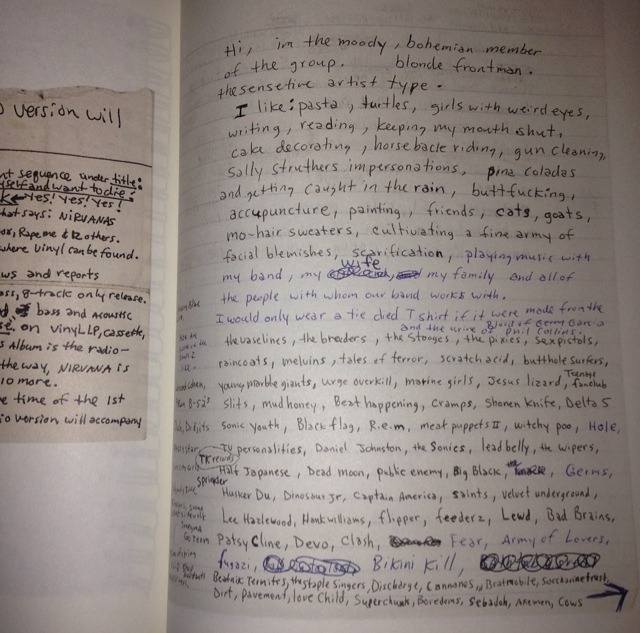 o version will
nt sequence under title:
yself and want to die.
Yes! Yes! Yes!
hat says: NIRVANAS
ox, Rape me & 12 others.
where vinyl can be found.
ws and reports
ass, 8-track only release.
bass and Acoustic
on vinyl LP, cassette,
s Album is the radio-
the way, NIRVANA is
no more.
e time of the 1st
io version will accompany
Hi, im the moody, bohemian member
of the group. blonde frontman.
the sensetive artist type.
I like: pasta, turtles, girls with weird eyes,
writing, reading, keeping my mouth shut,
cake decorating, horseback riding, gun cleaning,
Sally struthers impersonations, pina coladas
and getting caught in the rain, buttfucking,
accupuncture, painting, friends, cats, goats,
mo-hair sweaters, cultivating a fine army of
facial blemishes, scarification, playing music with
my band, my wife my family and all of
the people with whom our band works with.
I would only wear a tie died T shirt if it were made from the
Blood of Gerry Garcia
and the urine of Phil Collins.
the vaselines, the breeders, the Stooges, the pixies, Sex pistols,
raincoats, melvins, tales of terror, scratch acid, butthole surfers,
young marble giants, urge overkill, marine girls, Jesus lizard, Teenage fanclub
Slits, mudhoney, Beat happening, Cramps, Shonen Knife, Delta 5
Sonic youth, Black flag, R.e.m, meat puppets II, witchy poo, Hole,
TV personalities, Daniel Johnston, the Sonics, leadbelly, the wipers,
Half Japanese, Dead moon, public enemy, Big Black, the Germs,
Husker Du, Dinosaur Jr, Captain America, saints, velvet underground,
Lee Hazlewood, Hank williams, flipper, feederz, Lewd, Bad Brains,
Patsy Cline, Devo, Clash, Fear, Army of Lovers,
fugazi, Bikini Kill,
Beatnik Termites, the staple singers, Discharge, Cannanes, Bratmobile, Saccharine trust,
Dirt, pavement, love Child, Superchunk, Boredoms, Sebadoh, Axemen, Cows